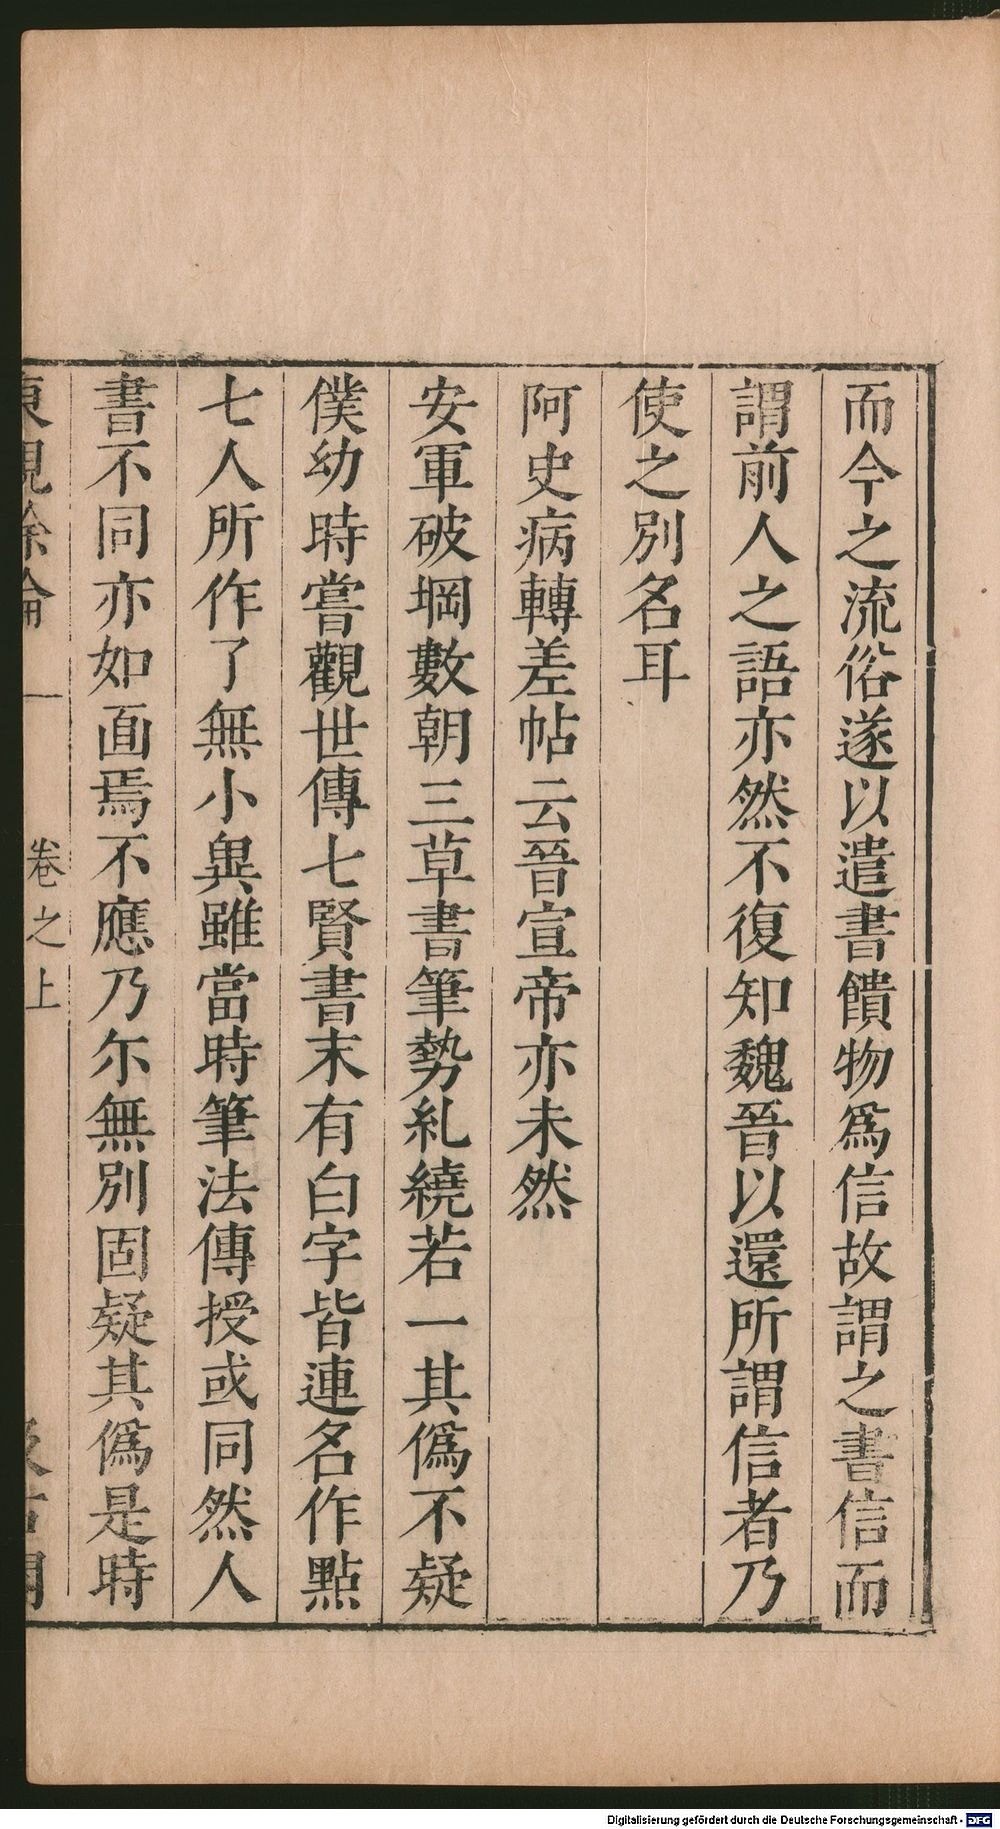 而今之流俗遂以遣書饋物爲信故謂之書信而
謂前人之語亦然不復知魏晉以還所謂信者乃
使之別名耳
阿史病轉差帖云晉宣帝亦未然
安軍破堈數朝三草書筆勢糺繞若一其僞不疑
僕幼時嘗觀世傳七賢書末有白字皆連名作點
七人所作了無小異雖當時筆法傳授或同然人
書不同亦如面焉不應乃尓無別固疑其僞是時
東觀餘論 一 卷之上 汲古閣
Digitalisierung gefördert durch die Deutsche Forschungsgemeinschaft - DFG